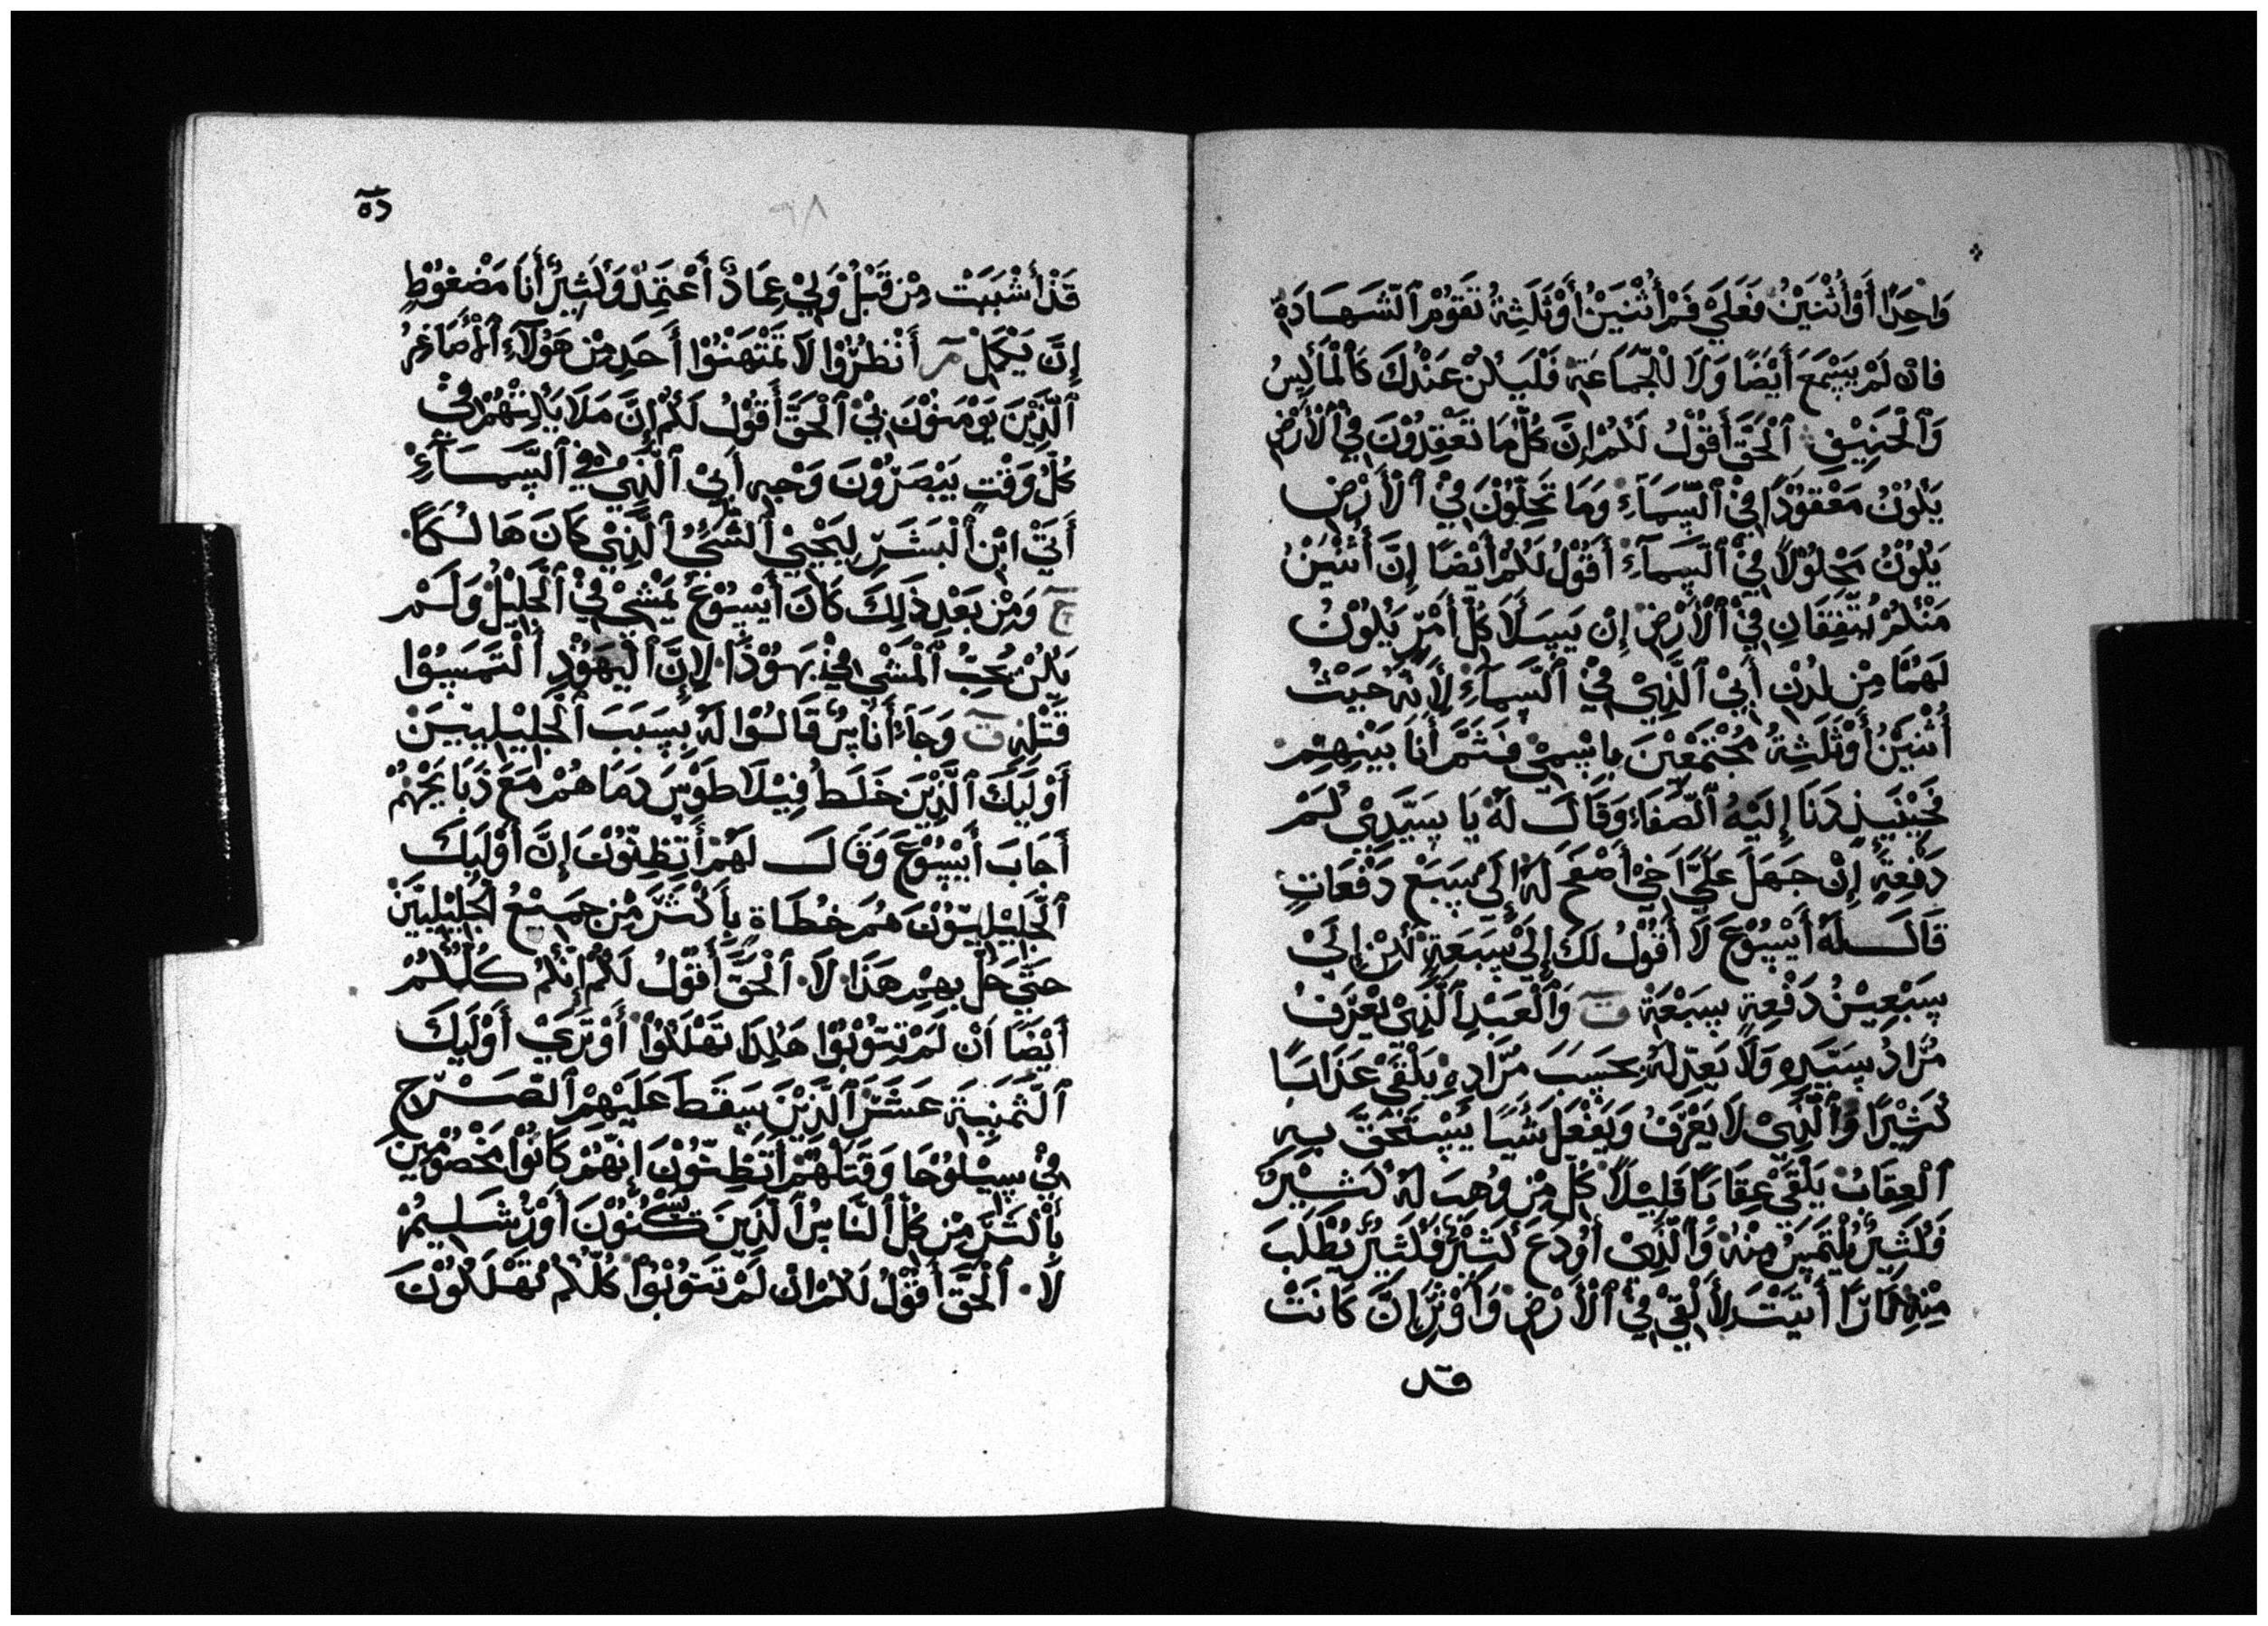 وَاحِدًا أَوْ أُثْنَيْنُ فَعَلَيَ فَمْ أُثْنَيْنُ أَوْ ثَلَثِةُ تَقُوْمُ ٱلشَّهَادَةُ
فان لَمْ يَسْمَعَ أَيْضًا وَلَا لْجَّمَاعَةِ فَلْيَكُنْ عَنْدكَ كَالْمَاكِسُ
وَٱلْحَنِيْفِ ٱلْحَقَّ أَقُوْلُ لَكُمْ إِنَّ كُلَّ مَا تَعْقِدُوْنَ فِيْ ٱلْأَرْضِ
يَكُوْنُ مَعْقُوْدًا فِيْ ٱلسَّمَآءِ وَمَا تَحِلَّوْنَ فِيْ ٱلْأَرْضِ
يَكُوْنُ مَحْلُوْلًا فِيْ ٱلسَمَآءِ أَقُوْلُ لَكُمْ أَيْضًا إِنَّ أُثْنَيْنُ
مَنْكُمْ يُتَّفِقَانِ فِيْ ٱلْأَرْضِ إِن يَسَلَا كُلَّ أَمْرٍ يَكُوْنُ
لَهُمَا مِنْ لدُنِ أَبِيْ ٱلَّذِيْ فِيْ ٱلسَّمَآءِ لِأَنَّهُ حَيْثُ
أُثْنَيْنُ أَوْ ثَلَثِةُ مُجْتَمَعْيْنَ بِاسْمِيْ فَثَمَّ أَنَا بَيْنِهِمْ
فَحِيْنَيِذٍ دَنَا إِلَيْهُ ٱلصَّفَاء وَقَالَ لَهُ يَا سَيَّدِيْ كَمْ
دَفْعِةٍ إِنْ جَهَلَ عَلَيَّ اخِيْ أَصْفَحَ لَهُ إِلَىْ سِبَعْ دَفْعَاتٍ
قَالَ لَهُ أَيْسُوْعَ لَا أَقُوْلُ لَكَ إِلَىْ سِبَعَةِ لَكِنْ إِلَىْ
سِبْعِيْنُ دَفْعِةٍ سِبْعَةْ ت وَٱلْعَبْدِ ٱلَّذِيْ يَعْرَفُ
مُرَادُ سَيّدِهِ وَلَا يَعِدّ لَهُ بِحَسَبَ مُرَّادِهِ يَلْقَىْ عَذَابًا
كَثِيْرًا وَٱلَّذِيْ لَا يَعْرَفُ وَيَفْعَلُ شَيًا يَسْتَحَقَّ بِهِ
ٱلْعِقَابُ يَلْقَىْ عِقَابًا قَلِيْلًا كُلّ مِنْ وُهِبَ لَهُ كَثِيْرُ
فَكَثِيْرُ يُلْتَمَسُ مِنْهُ وَٱلَّذِىْ أُوْدِعَ كَثِيْرُ فَكَثِيْرُ يُطْلَبَ
مِنْهِ نَارًا أَتَيْتَ لِأَلْقِيْ فِيْ ٱلْأَرْضِ وَأُوْثِرُ إِنَّ كَانَتْ
قد
قَدْ أَشْبَبَتْ مِنْ قَبْلُ وَلِيْ عِمَادٌ أَعْتَمِدُ وَكَثِيْرُ أَنَا مَضْغُوْطٍ
إِنَّ يَكْمَلْ مر أَنْظُرُوْا لَا تَمْتَهَنُوْا أَحَدٍ مِنْ هَوُلَآءِ ٱلْأَصَاغِرُ
ٱلَّذِيْنَ يَوْمَنُوْنَ بِيْ ٱلْحَقَّ أَقُوْلُ لَكُمْ إِنَّ مَلَايَكِتْهُمْ فِيْ
كُلُّ وَقْتٍ يَبْصَرُوْنَ وَجْهِ أَبِيْ ٱلَّذِيْ فِي ٱلسَّمَآءِ
أَتَىَ ابْنِ ٱلْبَشَرِ لِيَحْيِيْ ٱلشَّيُ ٱلَّذِيْ كَانَ هَالكًا
ج وَمِنْ بَعْدِ ذَلِكَ كَانَ أَيْسُوْعَ يَمْشِيْ فِيْ ٱلْجَلِيْلُ وَلَمْ
يَكُنْ يُحِبُّ ٱلْمَشْي فِيْ يَهُوْذَا لِإِنَّ ٱلْيَهُوْدِ ٱلْتَمَسُوْا
قَتْلِهِ ت وَجَاءَ أُنَاسُ قَالُوْا لَهُ بِسَبَبَ ٱلْجَلِيْلِيِيَنْ
أَوْلَيِكَ ٱلَّذِيْنَ خَلَطُ فِيْلَاطَوْسَ دَمَا هُمْ مَعَ ذَبَايَحْهُمْ
أَجَابَ أَيْسُوْعَ وَقَالَ لَهُمْ أَتِظِنُّوْنَ إِنَّ أَوْلَيِكَ
ٱلْجَلِيْلِيّوْنَ هُمَ خُطَاة بِأَكْثَرَّ مِنْ جَمِيْعُ لْجَلِيْلِيَّنْ
حَتَّىَ حَلَّ بِهِمْ هَذَا لَا ٱلْحَقَّ أَقُوْلُ لَكُمْ إِنَّكُمْ كُلُكُمْ
أَيْضًا اَنْ لَمْ تِتُوْبُوْا هَكَذَا تَهْلَكُوْا أَوْ تَرَيْ أَوْلَيِكَ
ٱلثَّمَنِيَة عَشَرَ ٱلَّذِيْنَ سِقَطَ عَلَيْهِمْ ٱلصَّرْحِ
فِيْ سِيْلُوْحَا وَقَتَلَهُمْ أَتَظِنُّوْنَ إِنَّهُمْ كَانُوْا مَخْصُوْمِيْنَ
بِأَكْثَرَّ مِنْ كُلَّ ٱلنَّاسُ ٱلَّذِيَنَ يسْكُنُوْنَ أَوْرُشَلِيْمُ
لَا ٱلْحَقَّ أَقُوْلُ لَكُمْ انْ لَمْ تَتُوْبُوْا كُلّكُمْ تَهْلَكُوْنَ